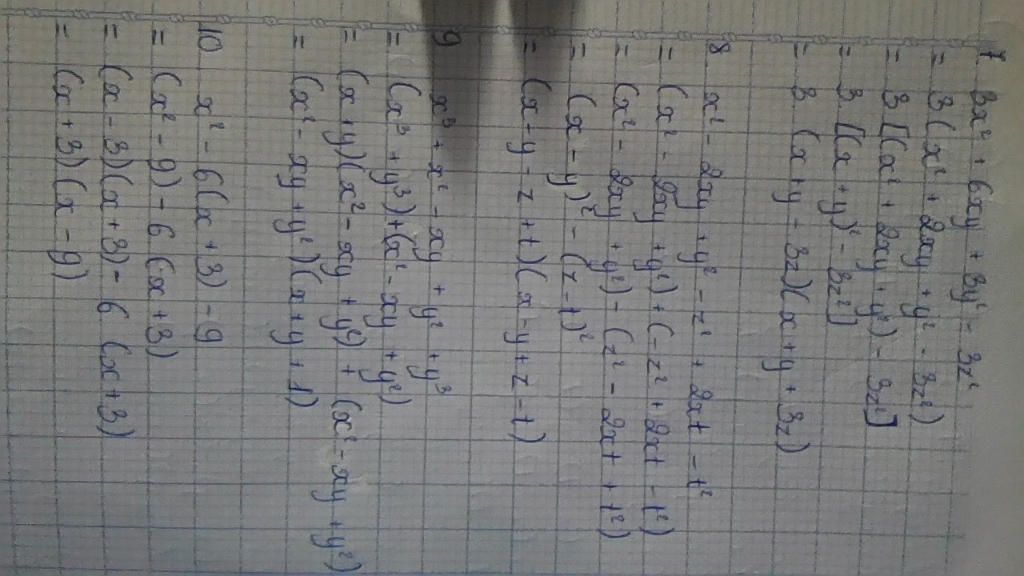 7 3x² + 6xy + 3y² - 3z²
= 3(x² + 2xy + y² - 3z²)
= 3[(x² + 2xy + y²) - 3z²]
= 3[(x + y)² - 3z²]
= 3 (x + y - 3z)(x + y + 3z)
8 x² - 2xy + y² - z² + 2xt - t²
= (x² - 2xy + y²) + (-z² + 2xt - t²)
= (x² - 2xy + y²) - (z² - 2xt + t²)
= (x - y)² - (z - t)²
= (x - y - z + t)(x - y + z - t)
9 x³ + x² - xy + y² + y³
= (x³ + y³) + (x² - xy + y²)
= (x + y)(x² - xy + y²) + (x² - xy + y²)
= (x² - xy + y²)(x + y + 1)
10 x² - 6(x + 3) - 9
= (x² - 9) - 6 (x + 3)
= (x - 3)(x + 3) - 6 (x + 3)
= (x + 3)(x - 9)